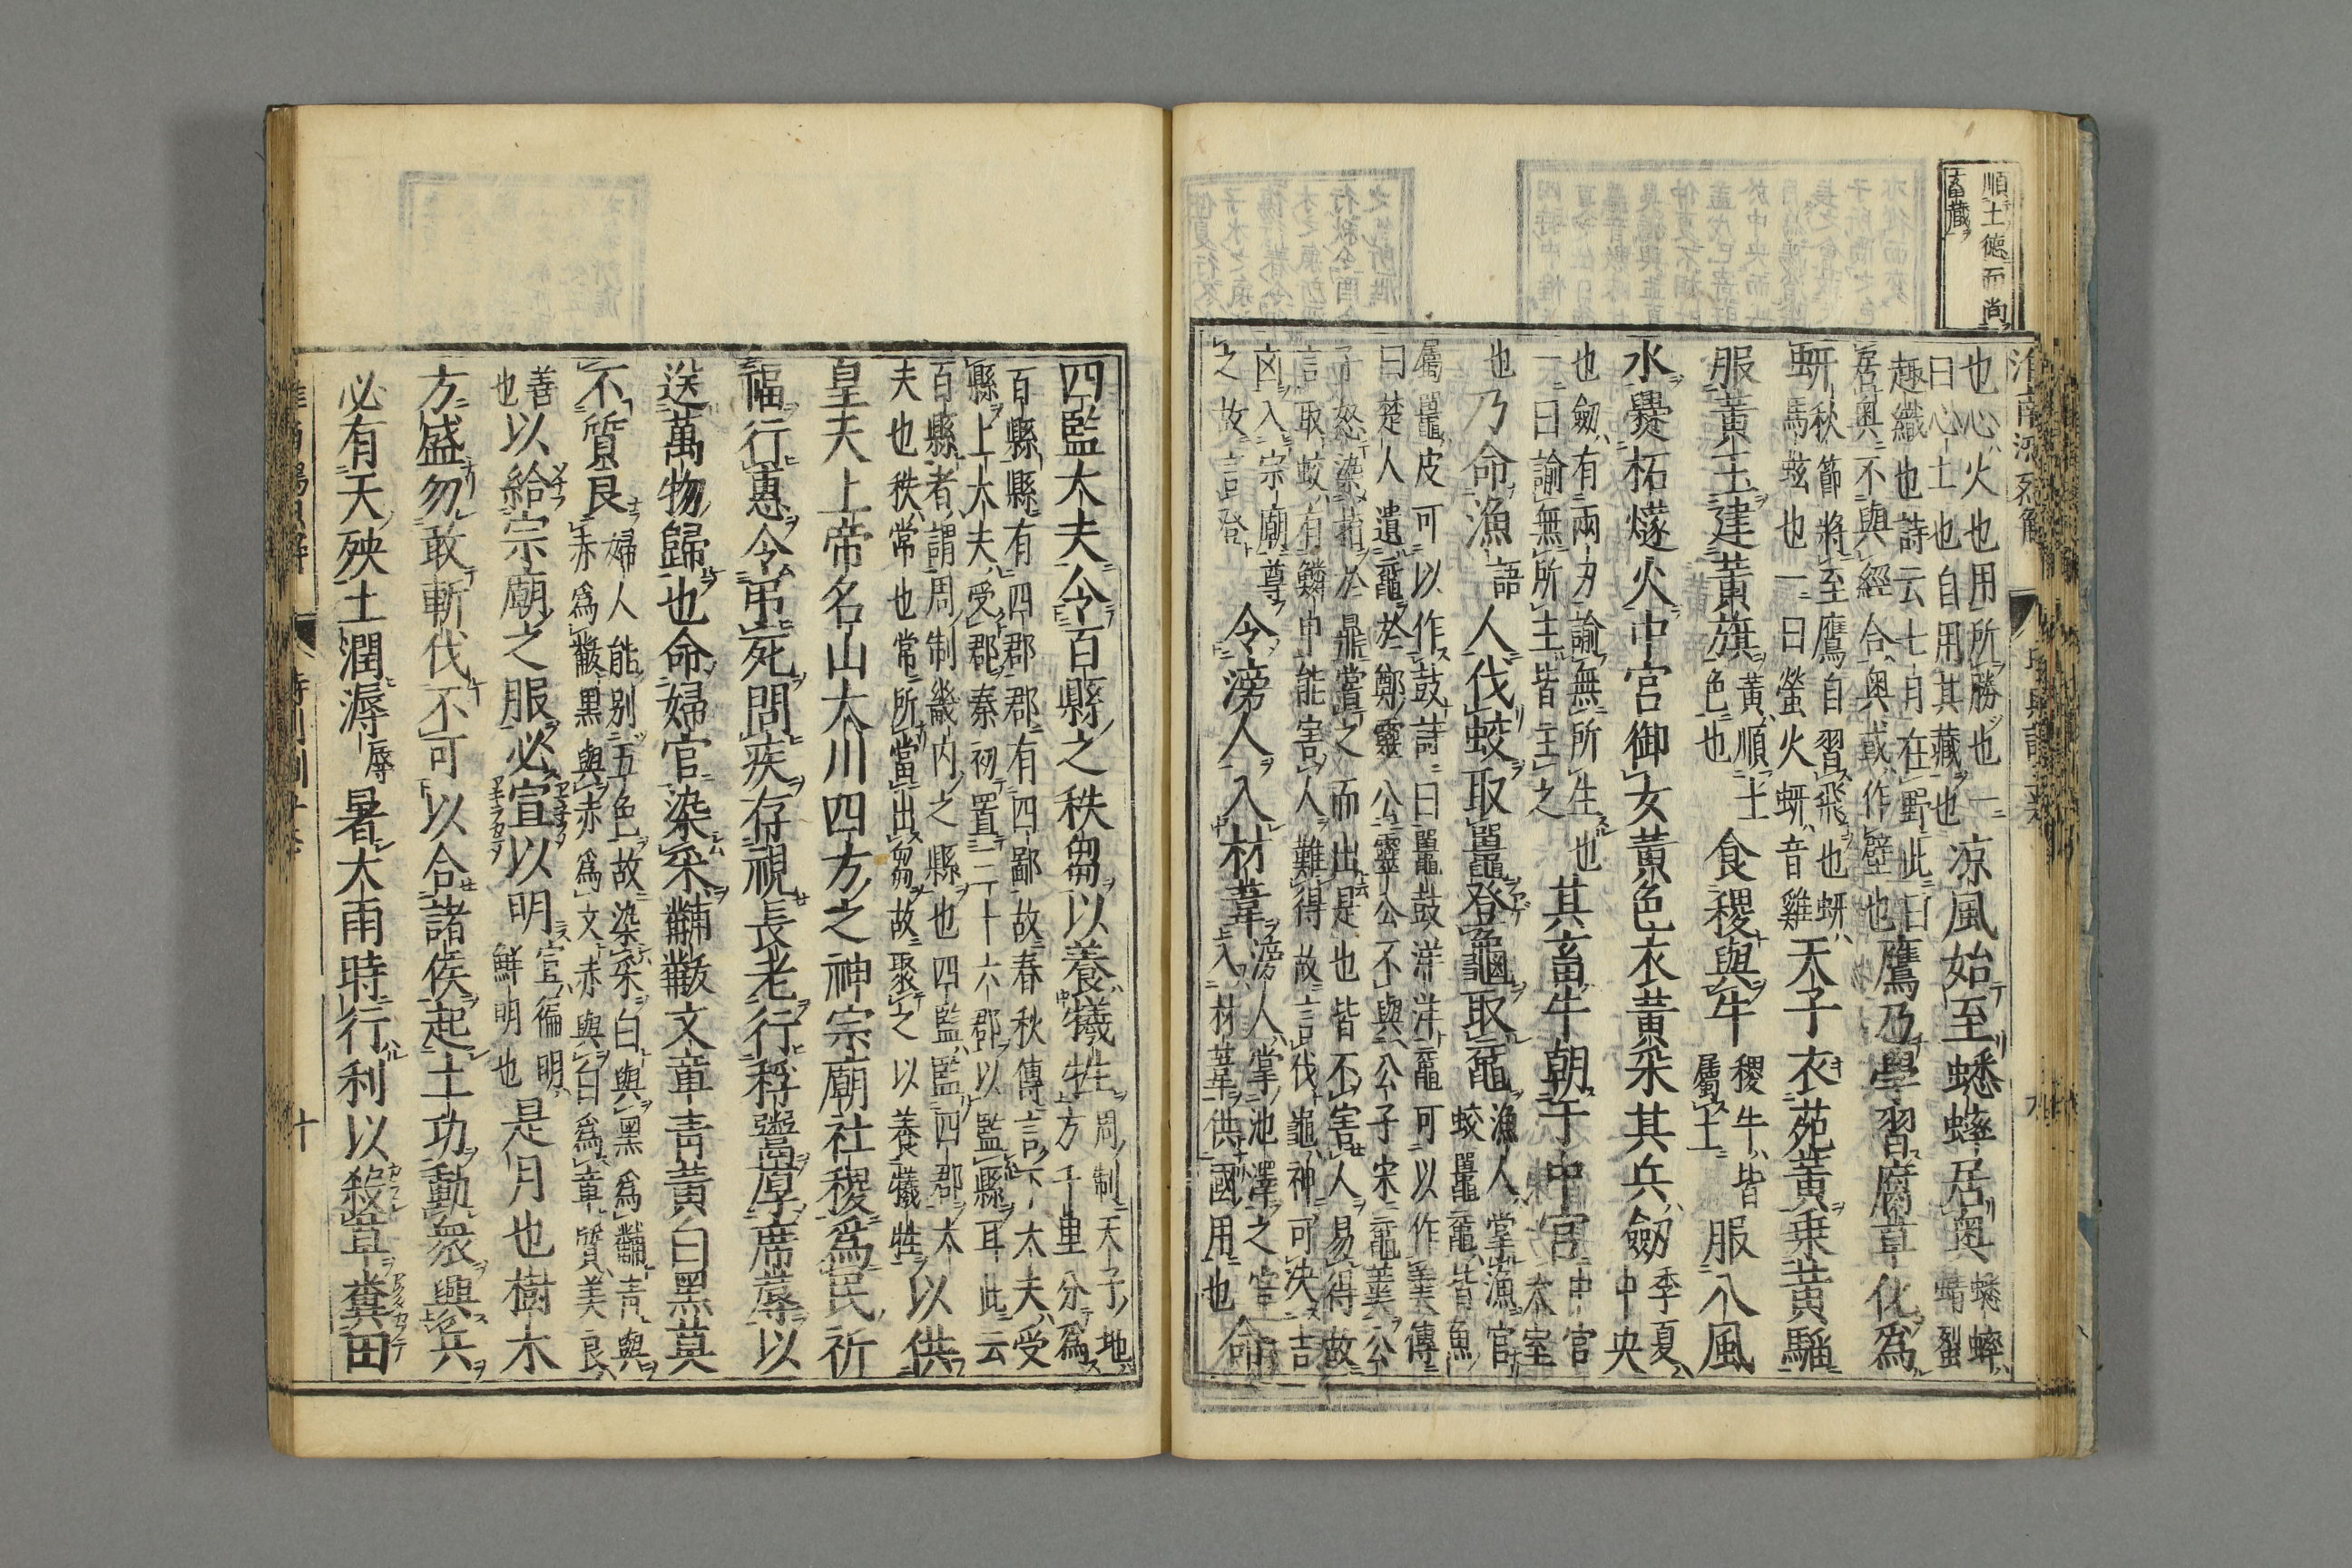 順土德而尚
畜藏
也心火也用所勝也一
曰心土也自用其藏也
涼風始至蟋蟀居奧
蟋蟀
蜻蛚
趣織也詩云七月在野此曰
居奧不與經合奧或作壁也
鷹乃學習腐草化爲
蚈
秋節將至鷹自習飛也蚈
馬蚿也一曰螢火蚈音雞
天子衣苑黃乗黃騮
服黃玉建黃旗
黃順土
色也
食稷與牛
稷牛皆
屬土
服八風
水爨柘燧火中宮御女黃色衣黃采其兵劒
季夏
中央
也劒有兩刃諭無所生也
一曰諭無所主皆主之
其畜牛朝于中宮
中宮
太室
也
乃命漁
語
人伐蛟取鼉登龜取黿
漁人掌漁官
蛟鼉黿皆魚
屬鼉皮可以作鼓詩曰鼉鼓洋洋黿可以作羹傳
曰楚人遺黿於鄭靈公靈公不與公子宋黿羹公
子怒染指於鼎嘗之而出是也皆不害人易得故
言取蛟有鱗甲能害人難得故言伐龜神可決吉
凶入宗廟尊
之故言登
令滂人入材葦
滂人掌池澤之官
入材葦供國用也
命
四監大夫令百縣之秩芻以養犧牲
周制天子地
方千里分爲
百縣縣有四郡郡有四鄙故春秋傳言下大夫受
縣上大夫受郡秦初置三十六郡以監縣耳此云
百縣者謂周制畿内之縣也四監監四郡大
夫也秩常也常所當出芻故聚之以養犧牲
以供
皇天上帝名山大川四方之神宗廟社稷爲民祈
福行惠令弔死問疾存視長老行稃鬻厚席蓐以
送萬物歸也命婦官染采黼黻文章青黃白黑莫
不質良
婦人能别五色故染采白與黑爲黼青與
赤爲黻黑與赤爲文赤與白爲章質美良
善
也
以給宗廟之服必宣以明
宣徧明
鮮明也
是月也樹木
方盛勿敢斬伐不可以合諸侯起土功動衆興兵
必有天殃土潤溽
辱
暑大雨時行利以殺草糞田
十